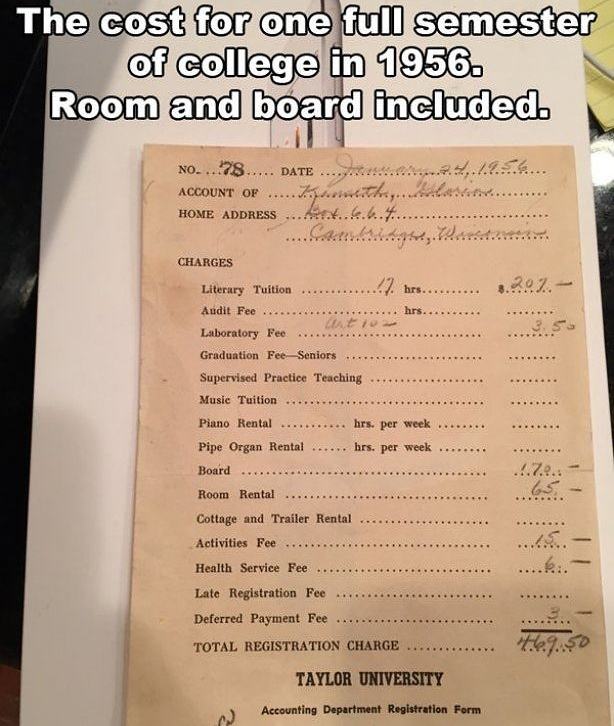 The cost for one full semester
of college in 1956.
Room and board included.
NO. ...78..... DATE ...January 24, 1956...
ACCOUNT OF ...Kenneth, ...
HOME ADDRESS ...Box 664...
....Cambridge, Wisconsin
CHARGES
Literary Tuition ............17. hrs...... $.207.—
Audit Fee .................... hrs......
Laboratory Fee Art 102 3.50
Graduation Fee—Seniors ........................
Supervised Practice Teaching ....................
Music Tuition ....................
Piano Rental .......... hrs. per week .........
Pipe Organ Rental ...... hrs. per week .........
Board ........................ .170..—
Room Rental ........................ 65.—
Cottage and Trailer Rental ....................
Activities Fee ........................ 15.—
Health Service Fee ........................ 6.—
Late Registration Fee ....................
Deferred Payment Fee .................... 3.—
TOTAL REGISTRATION CHARGE .............. 469.50
TAYLOR UNIVERSITY
Accounting Department Registration Form